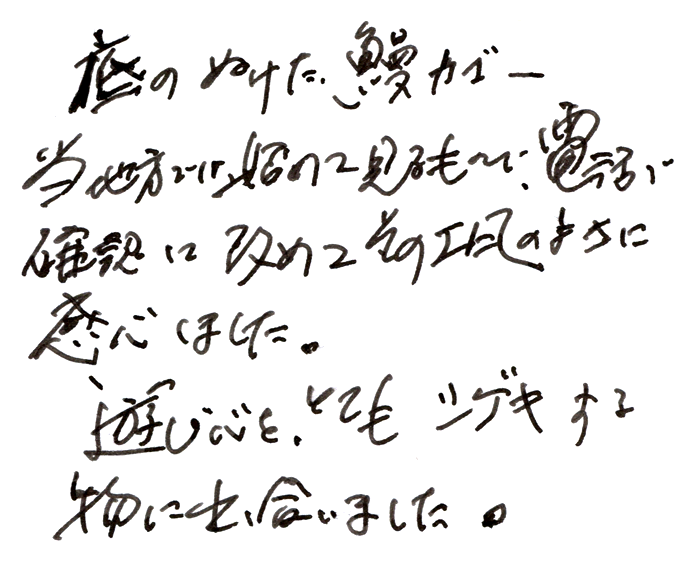 底のぬけた、鰻カゴー
当地方では始めて見るもので、電話で
確認に改めてその工夫のよさに
感心しました。
遊び心を、とてもシゲキする
物に出い合いました。